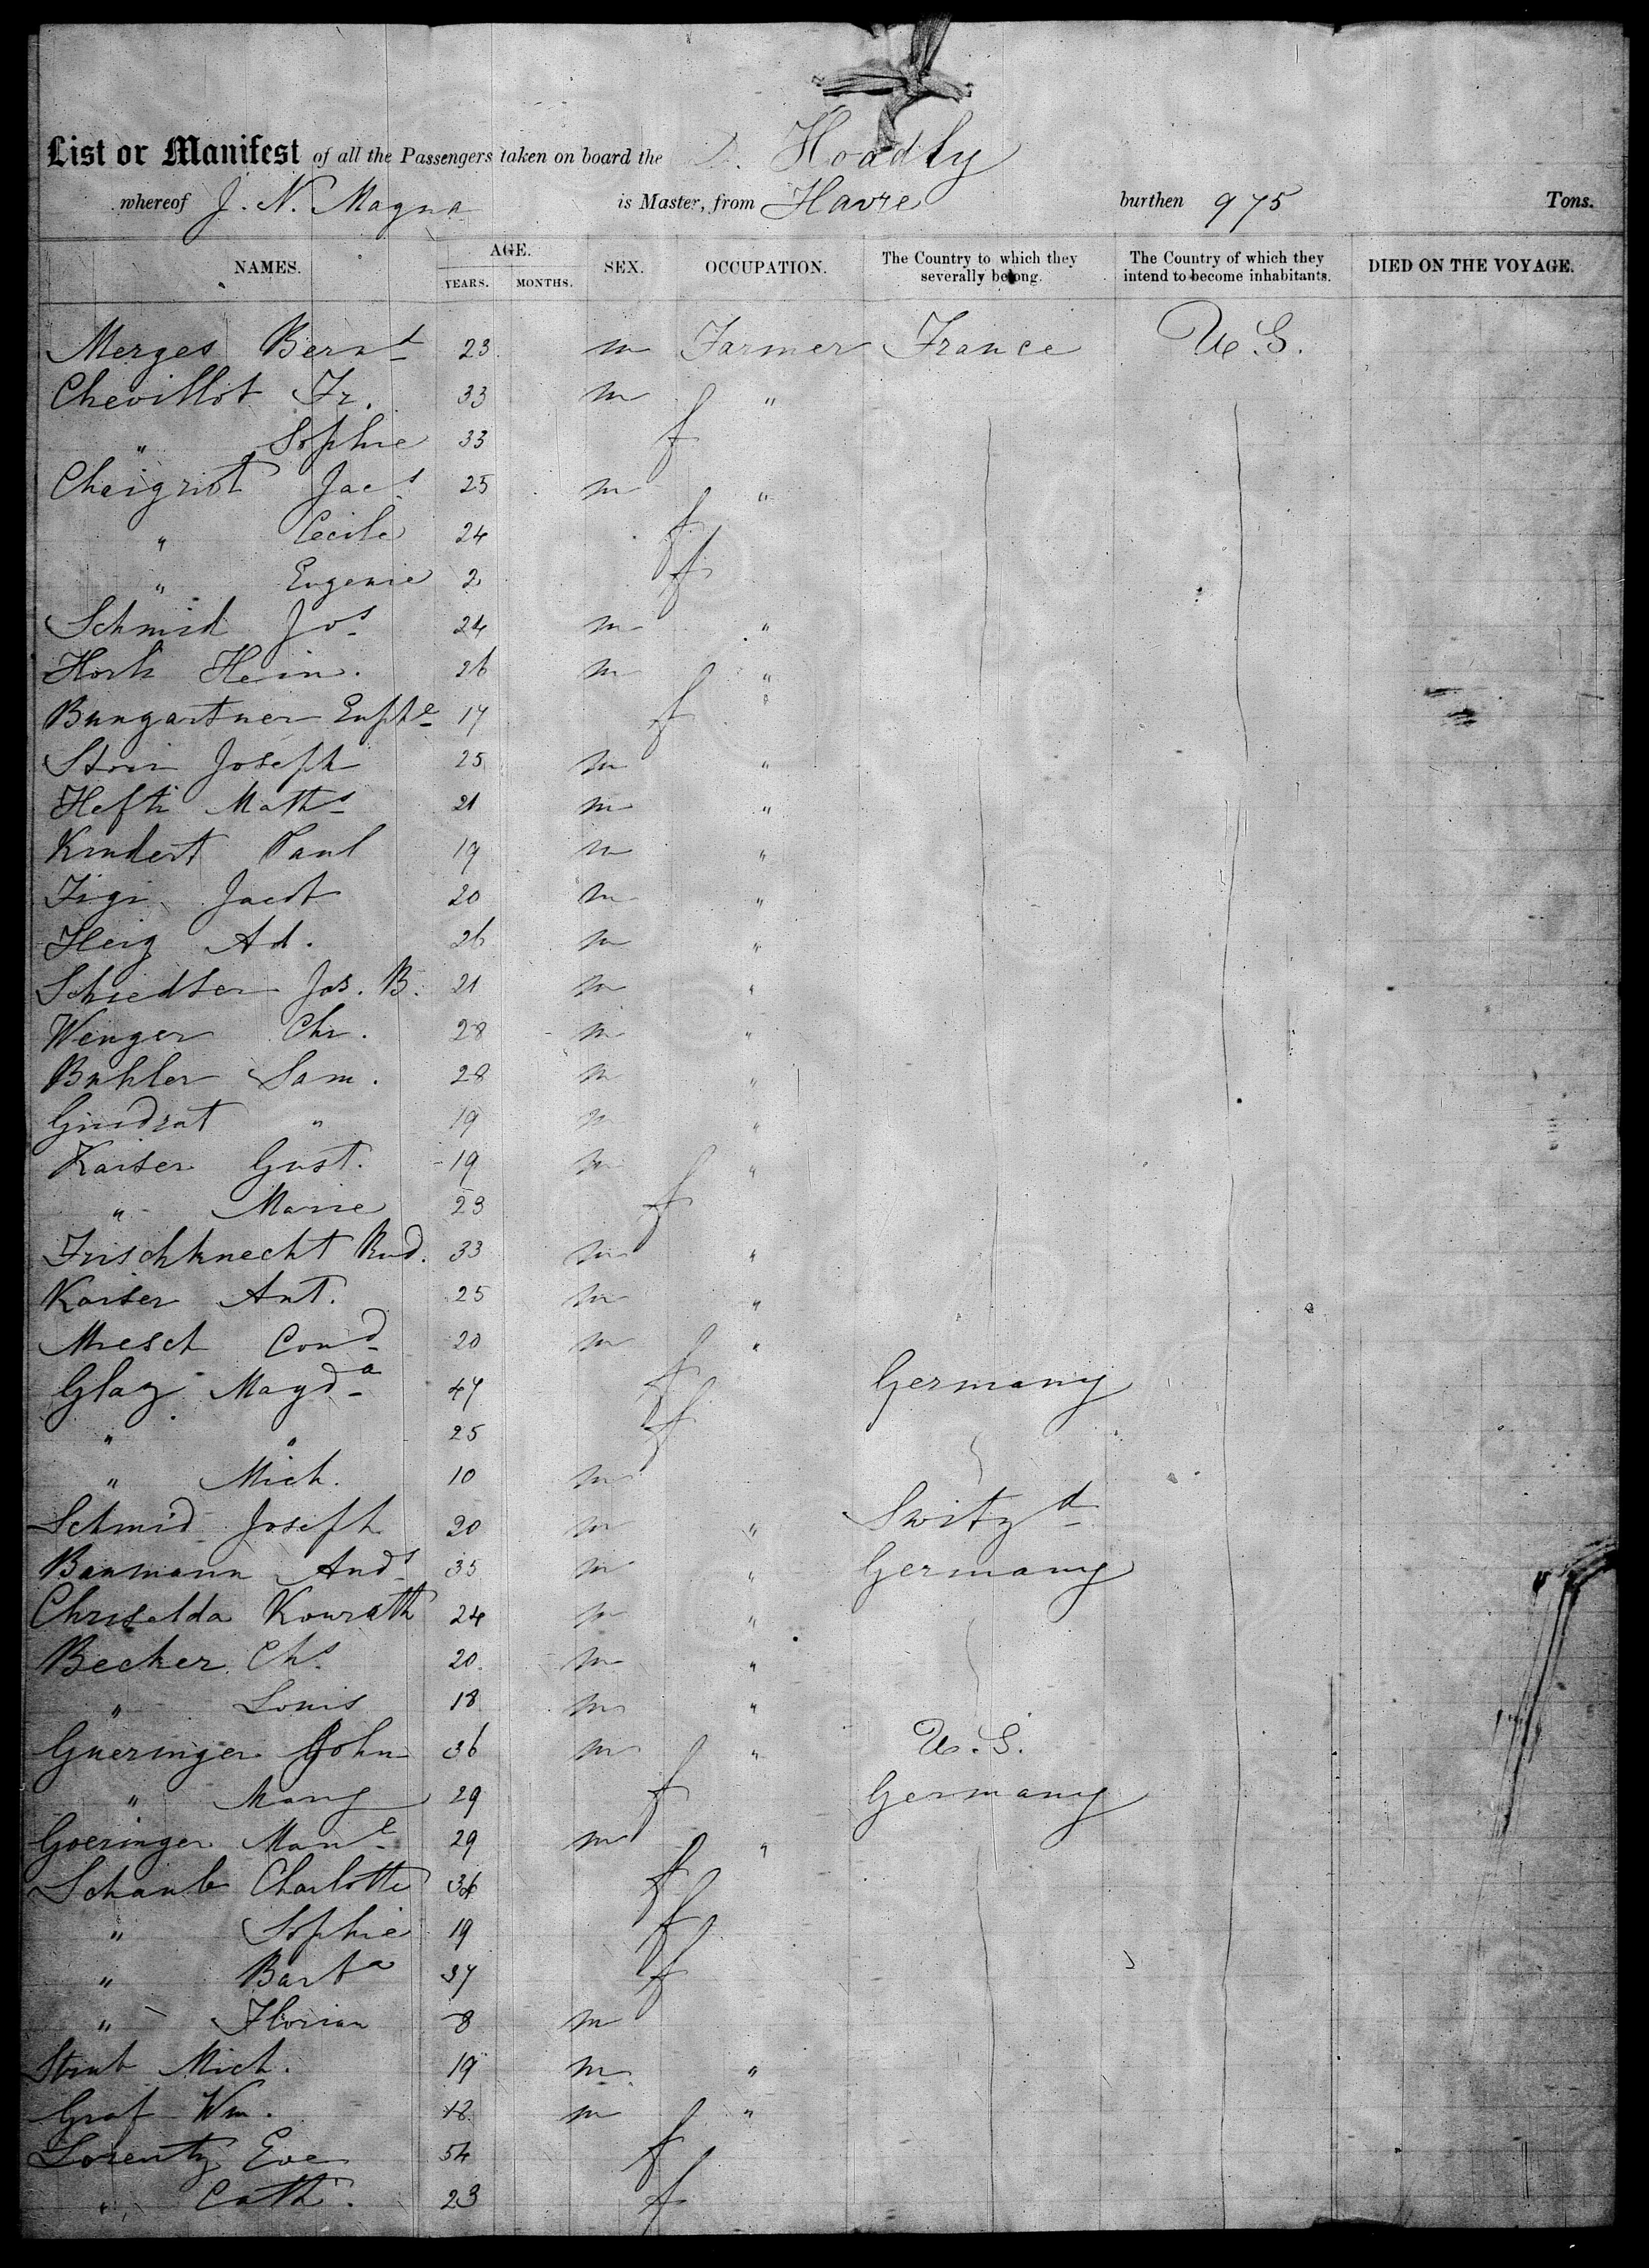 List or Manifest of all the Passengers taken on board the D. Hoadly
whereof J. N. Magna is Master, from Havre burthen 975 Tons.
NAMES. AGE. YEARS. MONTHS. SEX. OCCUPATION. The Country to which they severally belong. The Country of which they intend to become inhabitants. DIED ON THE VOYAGE.
Merges Bernd 23 m Farmer France U.S.
Chevillot Fr. 33 m "
" Sophie 33 f
Chaignot Jacs 25 m "
" Cecile 24 f
" Eugenie 2 f
Schmid Jos 24 m "
Hein. 26 m "
Bungartner Euphe 17 f "
Joseph 25 m "
Hefti Maths 21 m "
Kundert Paul 19 m "
Figi Jacob 20 m "
Heig Ad. 26 m "
Jos. B. 21 m "
Wenger Chr. 28 m "
Buhler Sam. 28 m "
Gindrat " 19 m "
Kaiser Gust. 19 m "
" Marie 23 f
Frischknecht Rud. 33 m "
Kaiser Ant. 25 m "
Miesch Cond 20 m "
Glaz Magda 47 f Germany
" " 25 f
" Mich. 10 m
Schmid Joseph 20 m " Switzd
Baumann Ands 35 m " Germany
Chriselda Konrath 24 m "
Becker Chs 20 m "
" Louis 18 m "
Gueringer John 36 m " U.S.
" Marg 29 f Germany
Goeringer Mane 29 m "
Schaub Charlotte 36 f
" Sophie 19 f
" Barba 37 f
" Florian 8 m
Strub Mich. 19 m "
Graf Wm. 18 m "
Lorentz Eve 54 f
" Cath. 23 f